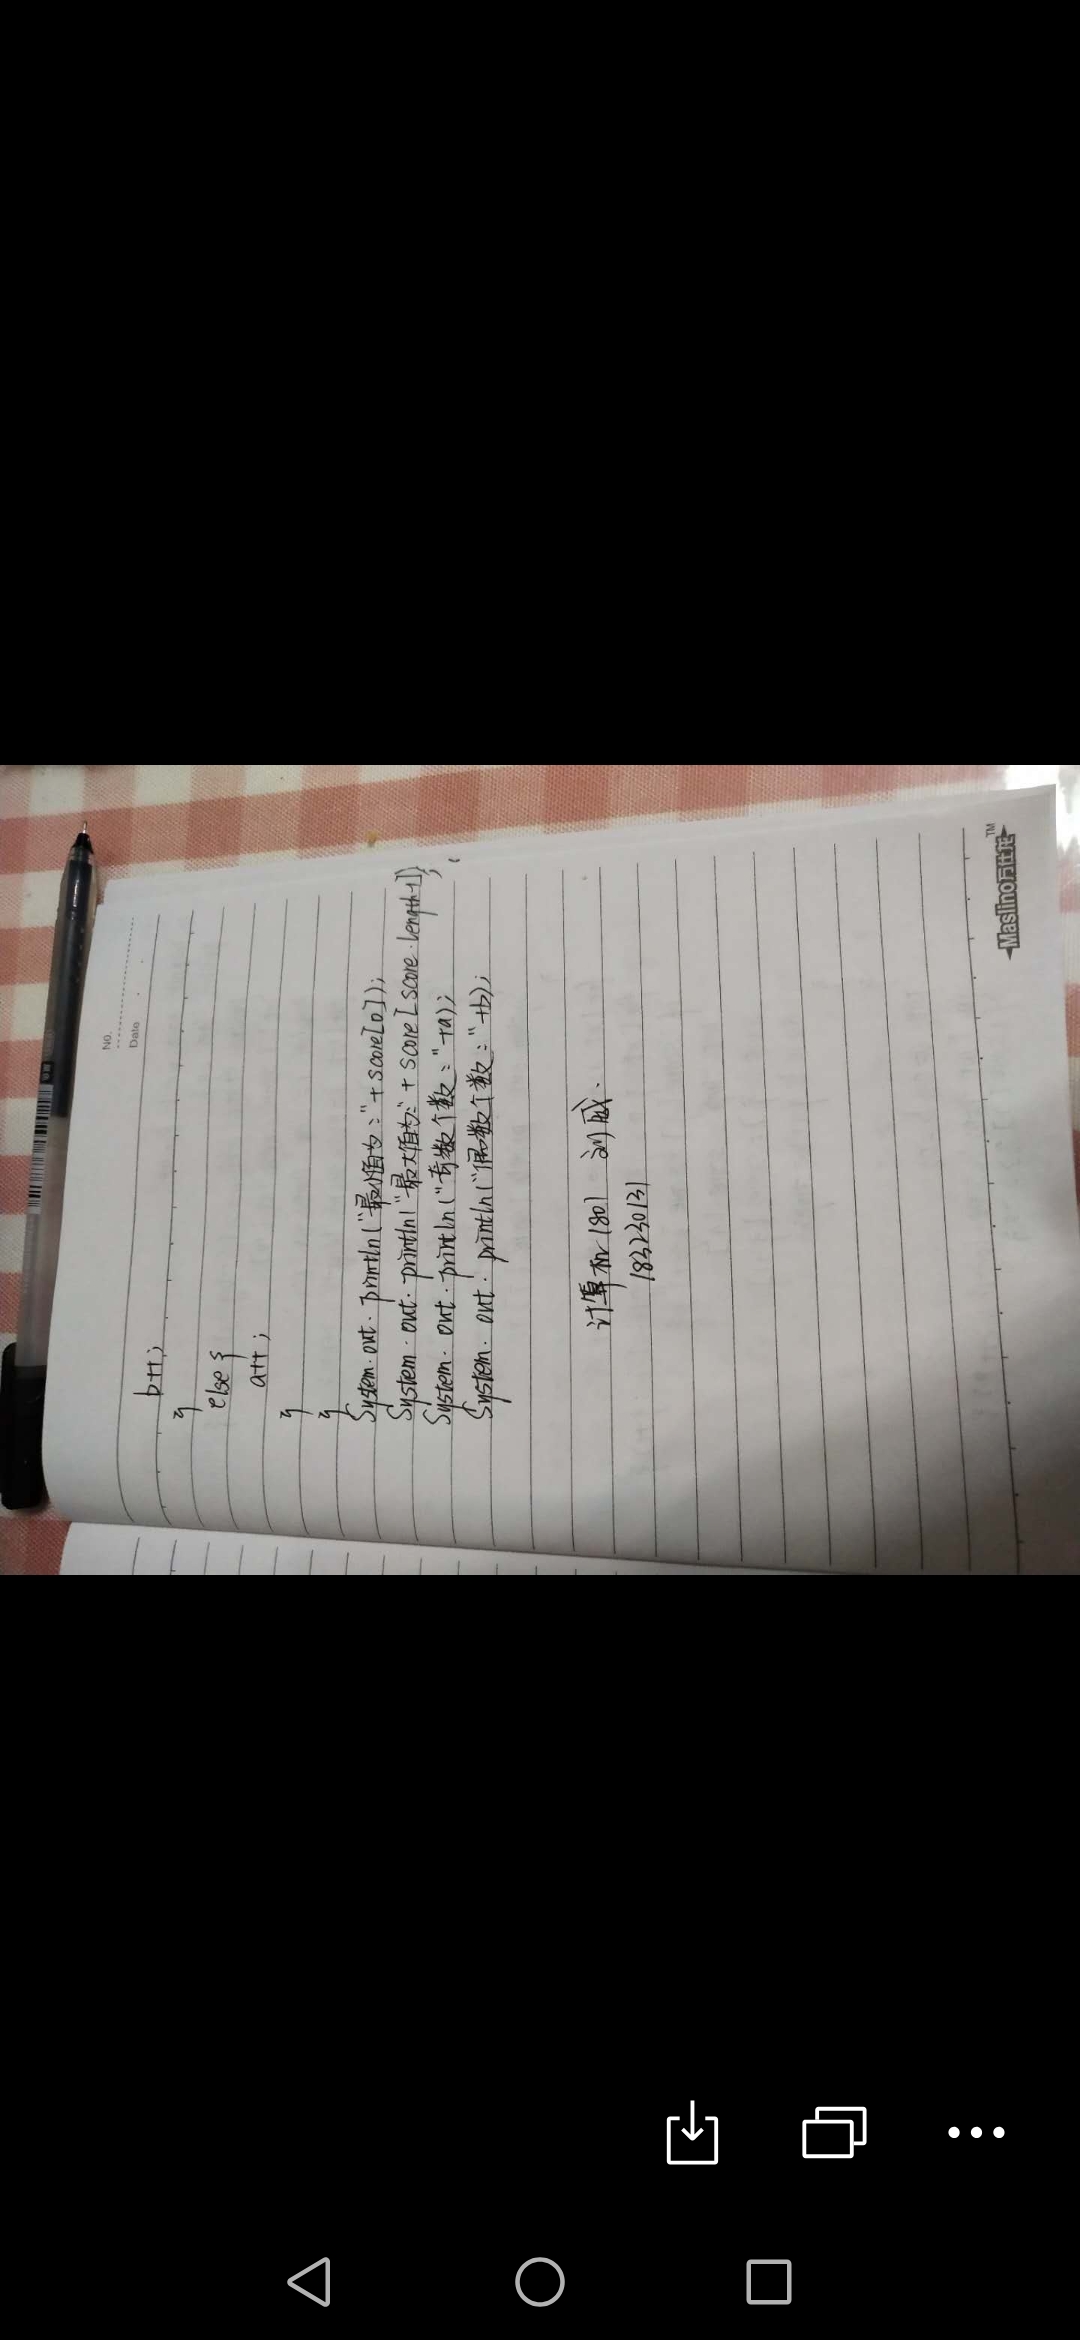 No.
Date
b++;
}
else {
a++;
}
}
System.out.println("最小值为:"+score[0]);
System.out.println("最大值为:"+score[score.length-1]);
System.out.println("奇数个数:"+a);
System.out.println("偶数个数:"+b);
计算机1801 刘威.
183230131
Maslino万仕龙™